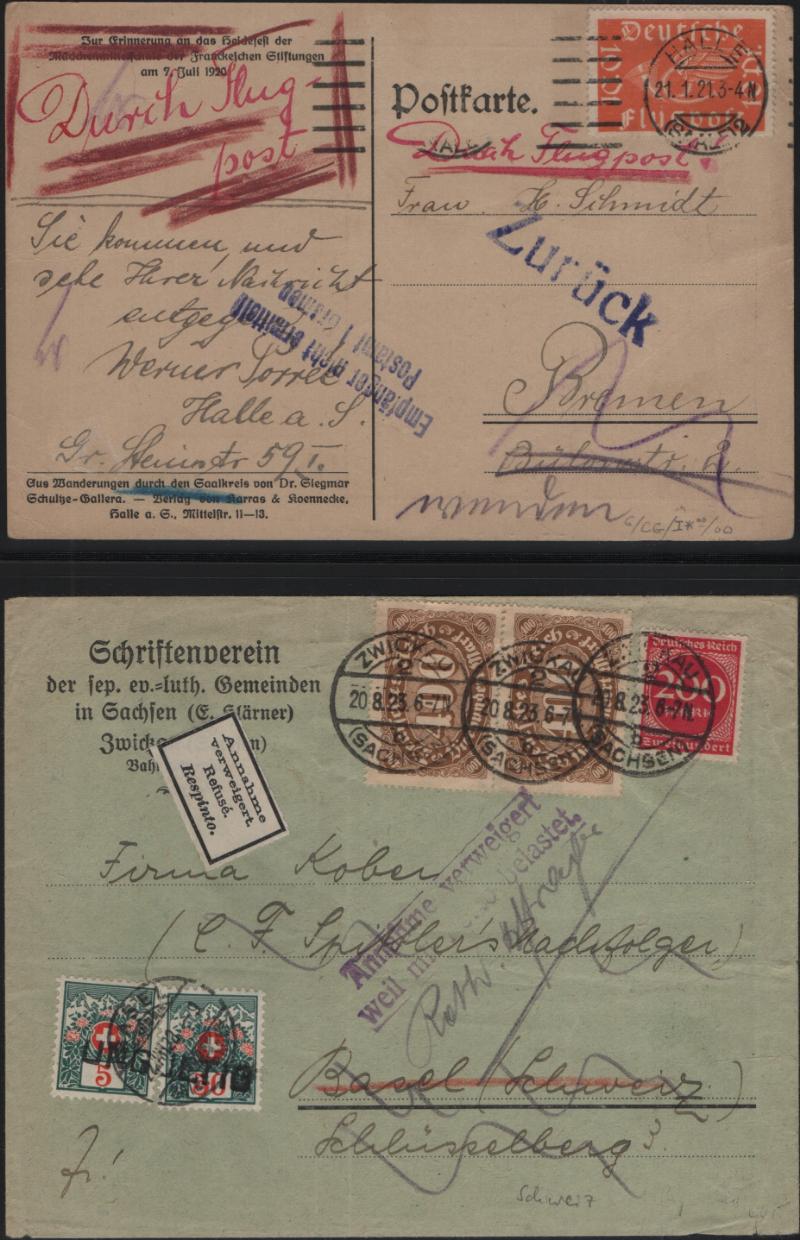 Zur Erinnerung an das Heidefest der
Mädchenmittelschule der Franckeschen Stiftungen
am 7. Juli 1920
Durch Flug-
post
Sie kommen, und
sehe Ihrer Nachricht
entgegen
Werner
Halle a. S.
Gr. Steinstr 59 I.
Aus Wanderungen durch den Saalkreis von Dr. Siegmar
Schultze-Gallera. — Verlag von Karras & Koennecke,
Halle a. S., Mittelstr. 11—13.
Empfänger nicht ermittelt
Postamt 1 Bremen
Postkarte.
Deutsche
Flugpost
10
HALLE
21.1.21.3-4N
(SAALE) 2
Durch Flugpost!
Frau. H. Schmidt
Zurück
Bremen
Bülowstr. 2.
wenden
Schriftenverein
der sep. ev.=luth. Gemeinden
in Sachsen (E. Klärner)
Annahme
verweigert.
Refusé.
Respinto.
400
400
Deutsches Reich
200
Zweihundert
ZWICKAU
2
20.8.23.6-7N
(SACHSEN)
ZWICKAU
2
20.8.23.6-7
(SACHSEN)
ZWICKAU
20.8.23.6-7N
SACHSEN
Annahme verweigert
weil mit belastet.
Firma Kober
(C. F. Spittler's Nachfolger)
Basel (Schweiz)
Schlüsselberg 3.
5
50
Schweiz